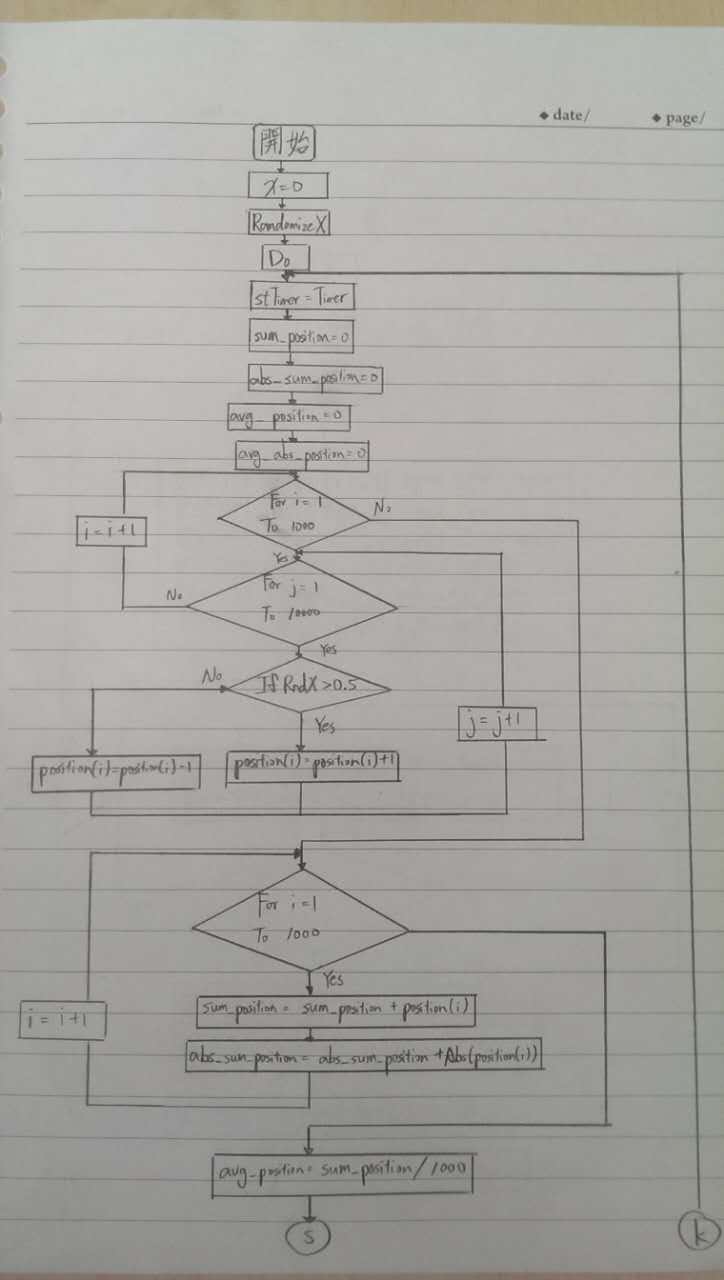 ◆ date/ ◆ page/
開始
X=0
Randomize X
Do
stTimer = Timer
sum_position=0
abs_sum_position=0
avg_position=0
avg_abs_position=0
For i = 1
To 1000
No
i = i+1
Yes
For j = 1
To 10000
No
Yes
If RndX >0.5
No
Yes
j = j+1
position(i)=position(i)-1
position(i)=position(i)+1
For i =1
To 1000
Yes
sum_position = sum_position + position(i)
i = i+1
abs_sum_position = abs_sum_position +Abs(position(i))
avg_position= sum_position / 1000
s
k